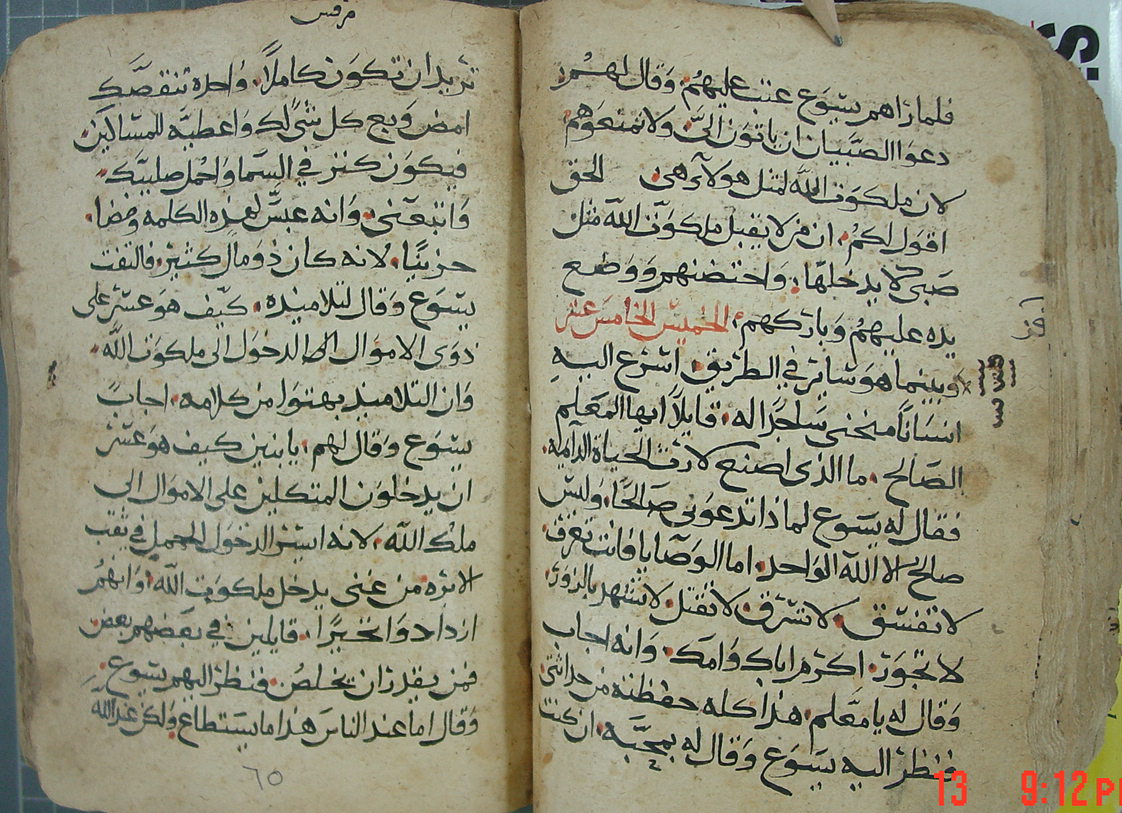 فلما راهم يسوع عتب عليهم. وقال لهم.
دعوا الصبيان ان ياتون الىّ ولا تمنعوهم
لان ملكوت الله لمثل هولاء هى الحق
اقول لكم. ان من لا يقبل ملكوت الله مثل
صبى لا يدخلها. واحتضنهم ووضع
يده عليهم وباركهم. الخميس الخامس عشر
وبينما هو ساير فى الطريق. اسرع اليه
انسانًا منحنى ساجدًا له. قايلاً ايها المعلم
الصالح. ما الذى اصنع لارث الحياة الدايمه.
فقال له يسوع لماذا تدعونى صالحًا. وليس
صالح الا الله الواحد. اما الوصايا فانت تعرف
لا تفسق. لا تسرق. لا تقتل. لا تشهد بالزور.
لا تجور. اكرم اباك وامك. وانه اجاب
وقال له يا معلم. هذا كله حفظته من حداثتى
فنظر اليه يسوع وقال له بمحبه. ان كنت
مرقس
تريد ان تكون كاملاً. واحدة تنقصك
امض وبع كل شى لك واعطيه للمساكين.
فيكون كنز فى السما واحمل صليبك.
واتبعنى. وانه عبس لهذه الكلمه ومضا.
حزينًا. لانه كان ذو مال كثير. فالتفت
يسوع وقال لتلاميذه. كيف هو عسر على
ذوى الاموال الدخول الى ملكوت الله.
وان التلاميذ بهتوا من كلامه. اجاب
يسوع وقال لهم. يا بنين كيف هو عسر
ان يدخلون المتكلين على الاموال الى
ملك الله. لانه ايسر الدخول الجمل فى ثقب
الابره. من غنى يدخل ملكوت الله. وانهم
ازدادوا تحيرًا. قايلين فى بعضهم بعض
فمن يقدر ان يخلص. فنظر اليهم يسوع.
وقال اما عند الناس هذا ما يستطاع ولكن عند الله
٦٥
13 9:12 PM